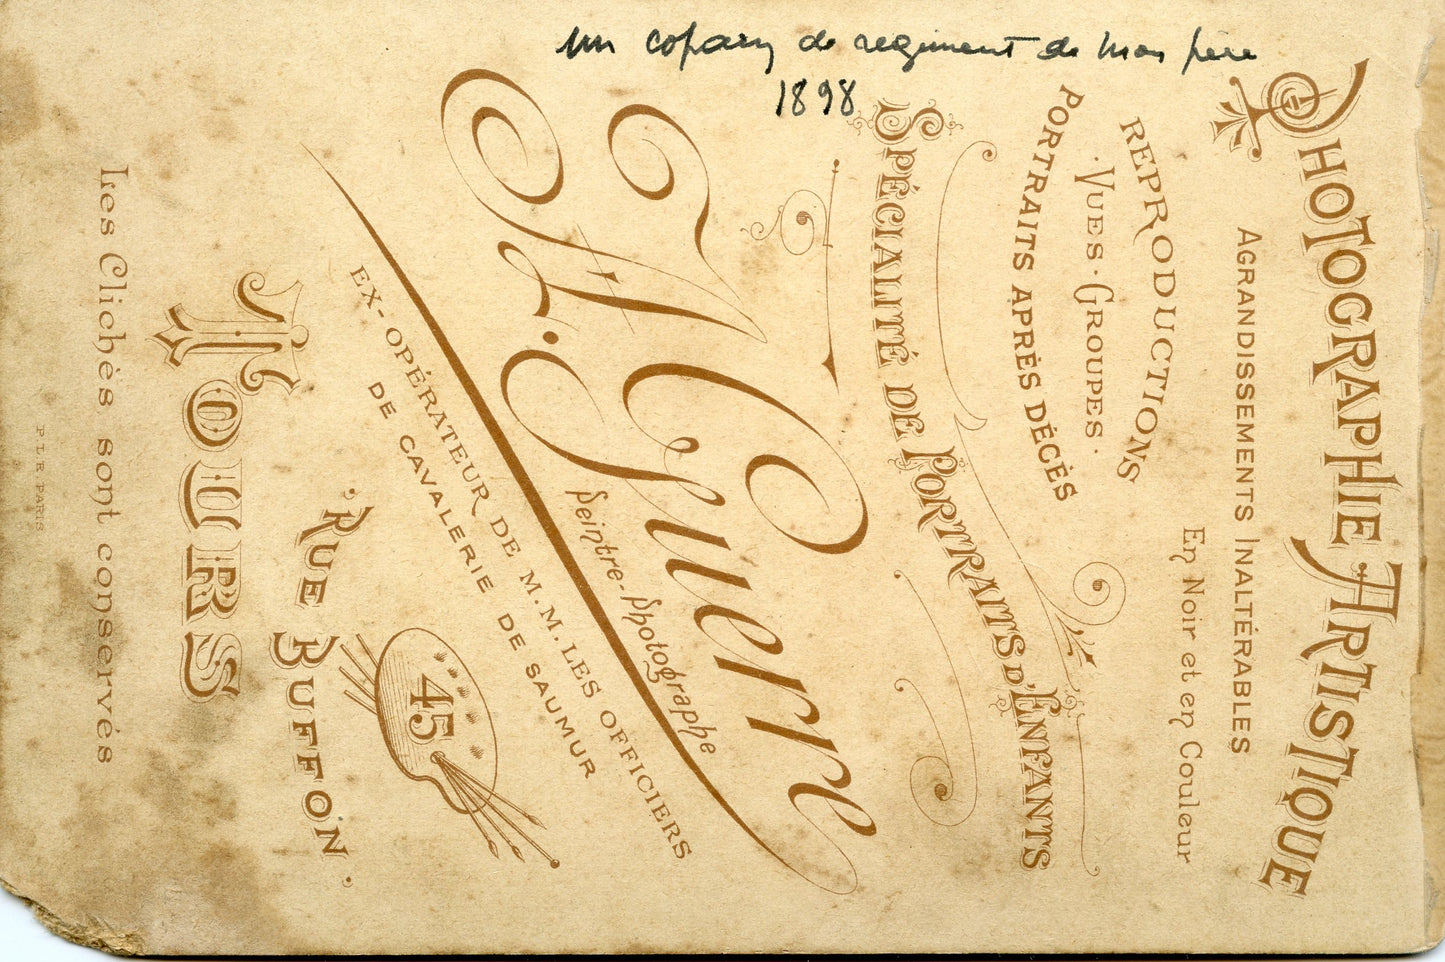 un copain de regiment de mon père
1898
PHOTOGRAPHIE ARTISTIQUE
AGRANDISSEMENTS INALTÉRABLES
En Noir et en Couleur
REPRODUCTIONS
·VUES·GROUPES·
PORTRAITS APRÈS DÉCÈS
SPÉCIALITÉ DE PORTRAITS D'ENFANTS
L. Guerre
Peintre-Photographe
EX-OPÉRATEUR DE M.M. LES OFFICIERS
DE CAVALERIE DE SAUMUR
45
·RUE BUFFON·
TOURS
Les Clichès sont conservés
P L R PARIS